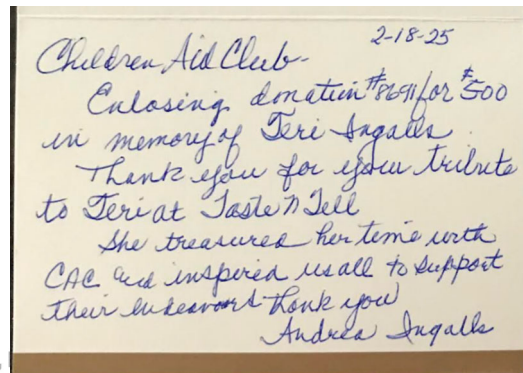 2-18-25
Children Aid Club-
Enlosing donation #8691 for $500
in memory of Teri Ingalls
Thank you for your tribute
to Teri at Taste N Tell
She treasured her time with
CAC and inspired us all to support
their endeavors thank you
Andrea Ingalls